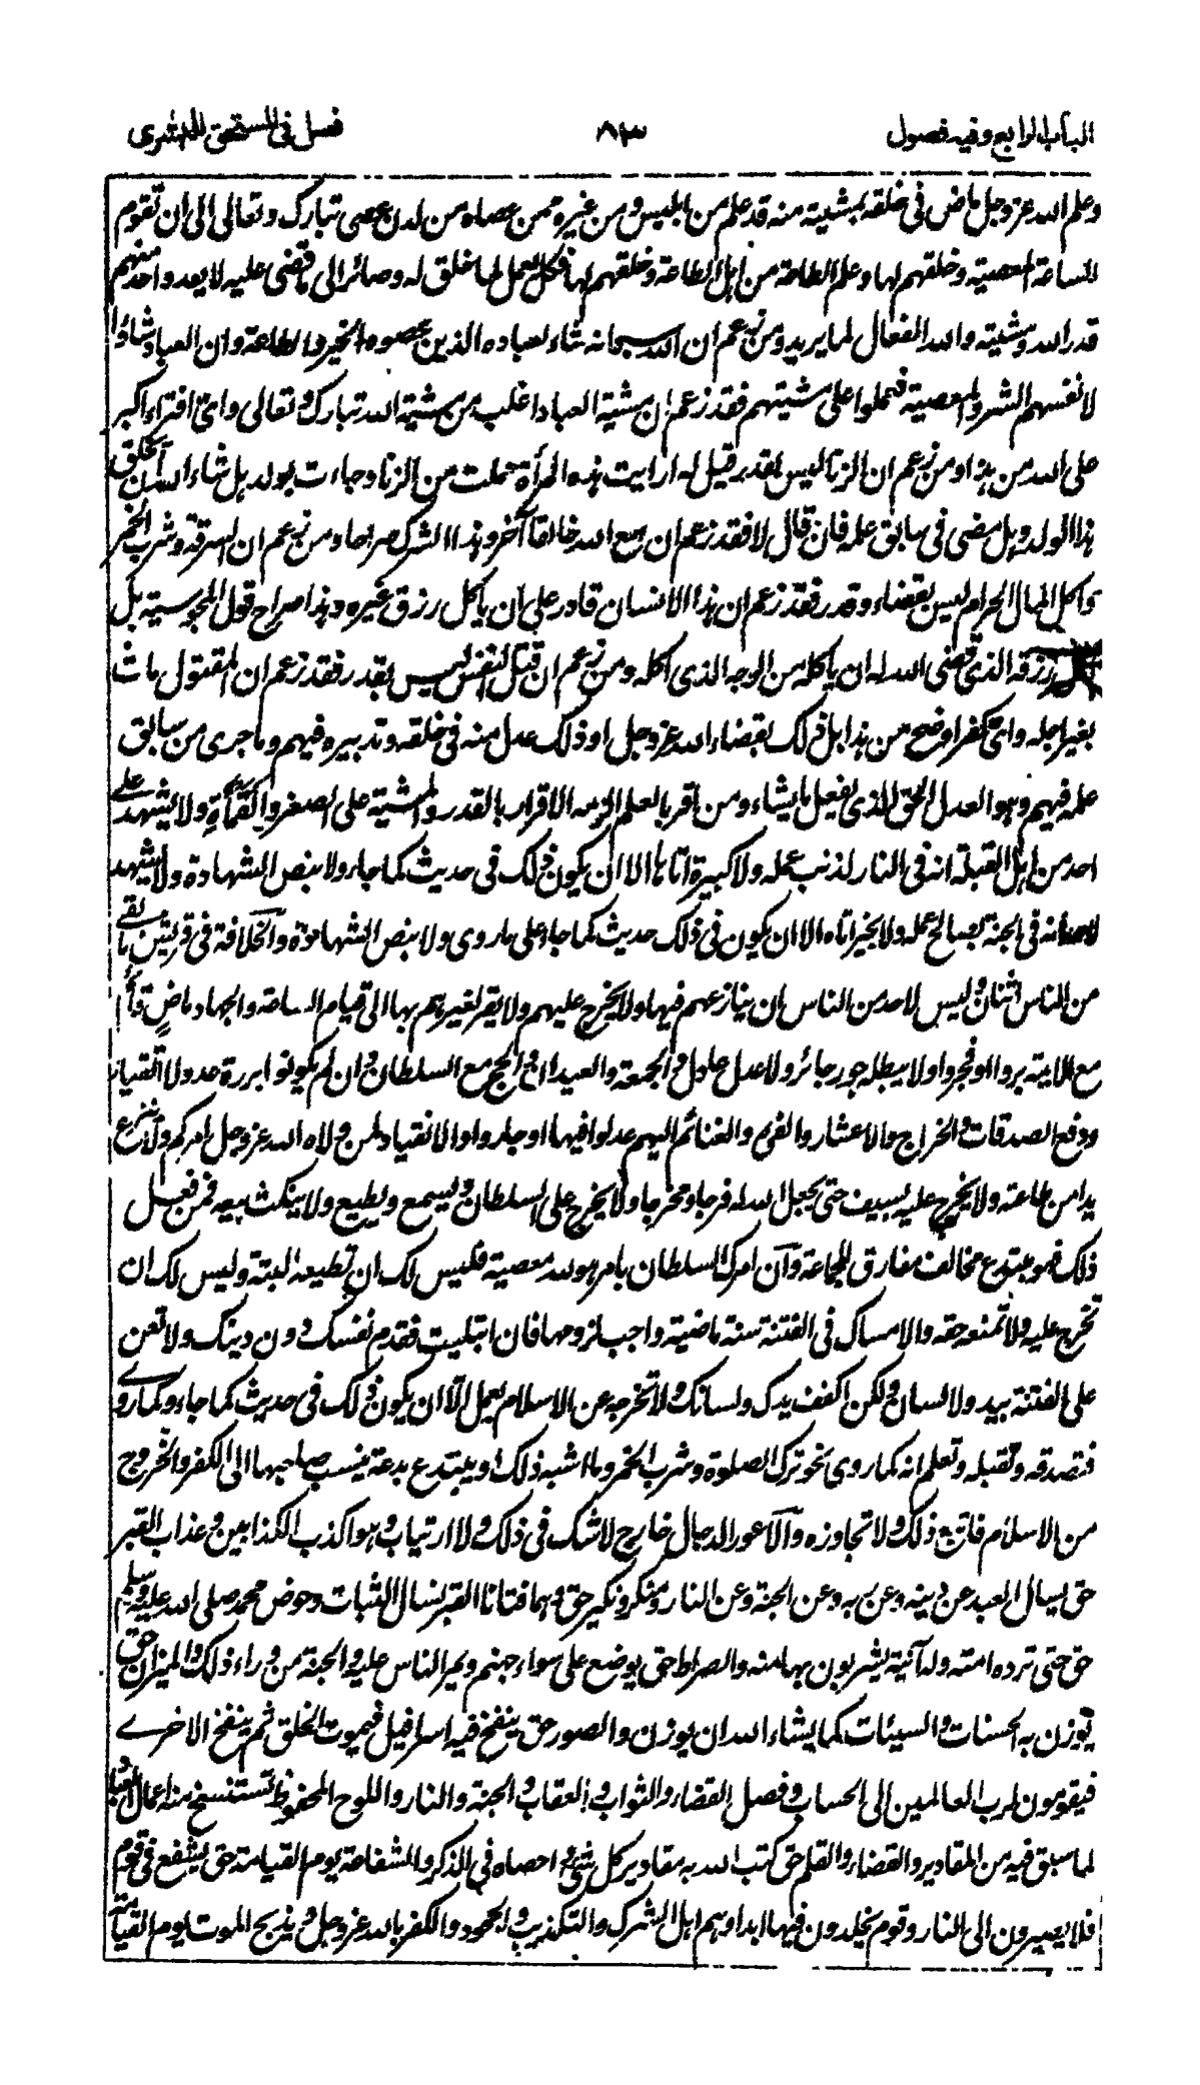 الباب الرابع وفيه فصول ٨٣ فصل في المستحق للبشرى
وعلم الله عز وجل ماض في خلقه بمشيته منه قد علم من ابليس ومن غيره ممن عصاه من لدن عصى تبارك وتعالى الى ان تقوم
الساعة المعصية وخلقهم لها وعلم الطاعة من اهل الطاعة وخلقهم لها فكل يعمل لما خلق له وصائر الى ما قضى عليه لا يعدو احد منهم
قدر الله ومشيته والله الفعال لما يريد ومن زعم ان الله سبحانه شاء لعباده الذين عصوه الخير والطاعة وان العباد شاؤا
لانفسهم الشر والمعصية فعملوا على مشيتهم فقد زعم ان مشية العباد اغلب من مشية الله تبارك وتعالى واي افتراء اكبر
على الله من هذا ومن زعم ان الزنا ليس بقدر قيل له ارايت هذه المرأة حملت من الزنا وجاءت بولد هل شاء الله ان يخلق
هذا الولد وهل مضى في سابق علمه فان قال لا فقد زعم ان مع الله خالقا آخر وهذا الشرك صراحا ومن زعم ان السرقة وشرب الخمر
واكل المال الحرام ليس بقضاء وقدر فقد زعم ان هذا الانسان قادر على ان ياكل رزق غيره وهذا صراح قول المجوسية بل
اكل رزقه الذي قضى الله له ان ياكله من الوجه الذي اكله ومن زعم ان قتل النفس ليس بقدر فقد زعم ان المقتول مات
بغير اجله واي كفر اوضح من هذا بل ذلك بقضاء الله عز وجل وذلك عدل منه في خلقه وتدبيره فيهم وما جرى من سابق
علمه فيهم وهو العدل الحق الذي يفعل ما يشاء ومن اقر بالعلم لزمه الاقرار بالقدر والمشية على الصغر والقماءة ولا يشهد على
احد من اهل القبلة انه في النار لذنب عمله ولا كبيرة اتاها الا ان يكون ذلك في حديث كما جاء ولا بنص الشهادة ولا يشهد
لاحد انه في الجنة بصالح عمله ولا بخير اتاه الا ان يكون في ذلك حديث كما جاء على ما روى ولا بنص الشهادة والخلافة في قريش ما بقي
من الناس اثنان وليس لاحد من الناس ان ينازعهم فيها ولا يخرج عليهم ولا يقر لغيرهم بها الى قيام الساعة والجهاد ماض قائم
مع الائمة بروا او فجروا ولا يبطله جور جائر ولا عدل عادل والجمعة والعيدان والحج مع السلطان وان لم يكونوا بررة عدولا اتقياء
ودفع الصدقات والخراج والاعشار والفيء والغنائم اليهم عدلوا فيها او جاروا والانقياد لمن ولاه الله عز وجل امركم ولا تنزع
يدا من طاعة ولا يخرج عليه بسيف حتى يجعل الله له فرجا ومخرجا ولا يخرج على السلطان ويسمع ويطيع ولا ينكث بيعه فمن فعل
ذلك فهو مبتدع مخالف مفارق للجماعة وان امرك السلطان بامر هو لله معصية فليس لك ان تطيعه البتة وليس لك ان
تخرج عليه ولا تمنعه حقه والامساك في الفتنة سنة ماضية واجب لزومها فان ابتليت فقدم نفسك دون دينك ولا تعن
على الفتنة بيد ولا لسان ولكن اكفف يدك ولسانك ولا تخرجه عن الاسلام بعمل الا ان يكون ذلك في حديث كما جاء وكما روي
فتصدقه وتقبله وتعلم انه كما روى نحو ترك الصلوة وشرب الخمر وما اشبه ذلك او يبتدع بدعة ينسب صاحبها الى الكفر والخروج
من الاسلام فاتبع ذلك ولا تجاوزه والاعور الدجال خارج لا شك في ذلك ولا ارتياب وهو اكذب الكذابين وعذاب القبر
حق يسال العبد عن دينه وعن ربه وعن الجنة وعن النار ومنكر ونكير حق وهما فتانا القبر نسال الله الثبات وحوض محمد صلى الله عليه وسلم
حق حتى ترده امته وله آنية يشربون بها منه والصراط حق يوضع على سواء جهنم ويمر الناس عليه والجنة من وراء ذلك والميزان حق
توزن به الحسنات والسيئات كما يشاء الله ان يوزن والصور حق ينفخ فيه اسرافيل فيموت الخلق ثم ينفخ الاخرى
فيقومون لرب العالمين الى الحساب وفصل القضاء والثواب والعقاب والجنة والنار واللوح المحفوظ تستنسخ منه اعمال العباد
لما سبق فيه من المقادير والقضاء والقلم حق كتب الله به مقادير كل شئ واحصاه في الذكر والشفاعة يوم القيامة حق يشفع في قوم
فلا يصيرون الى النار وقوم يخلدون فيها ابدا وهم اهل الشرك والتكذيب والجحود والكفر بالله عز وجل ويذبح الموت يوم القيامة